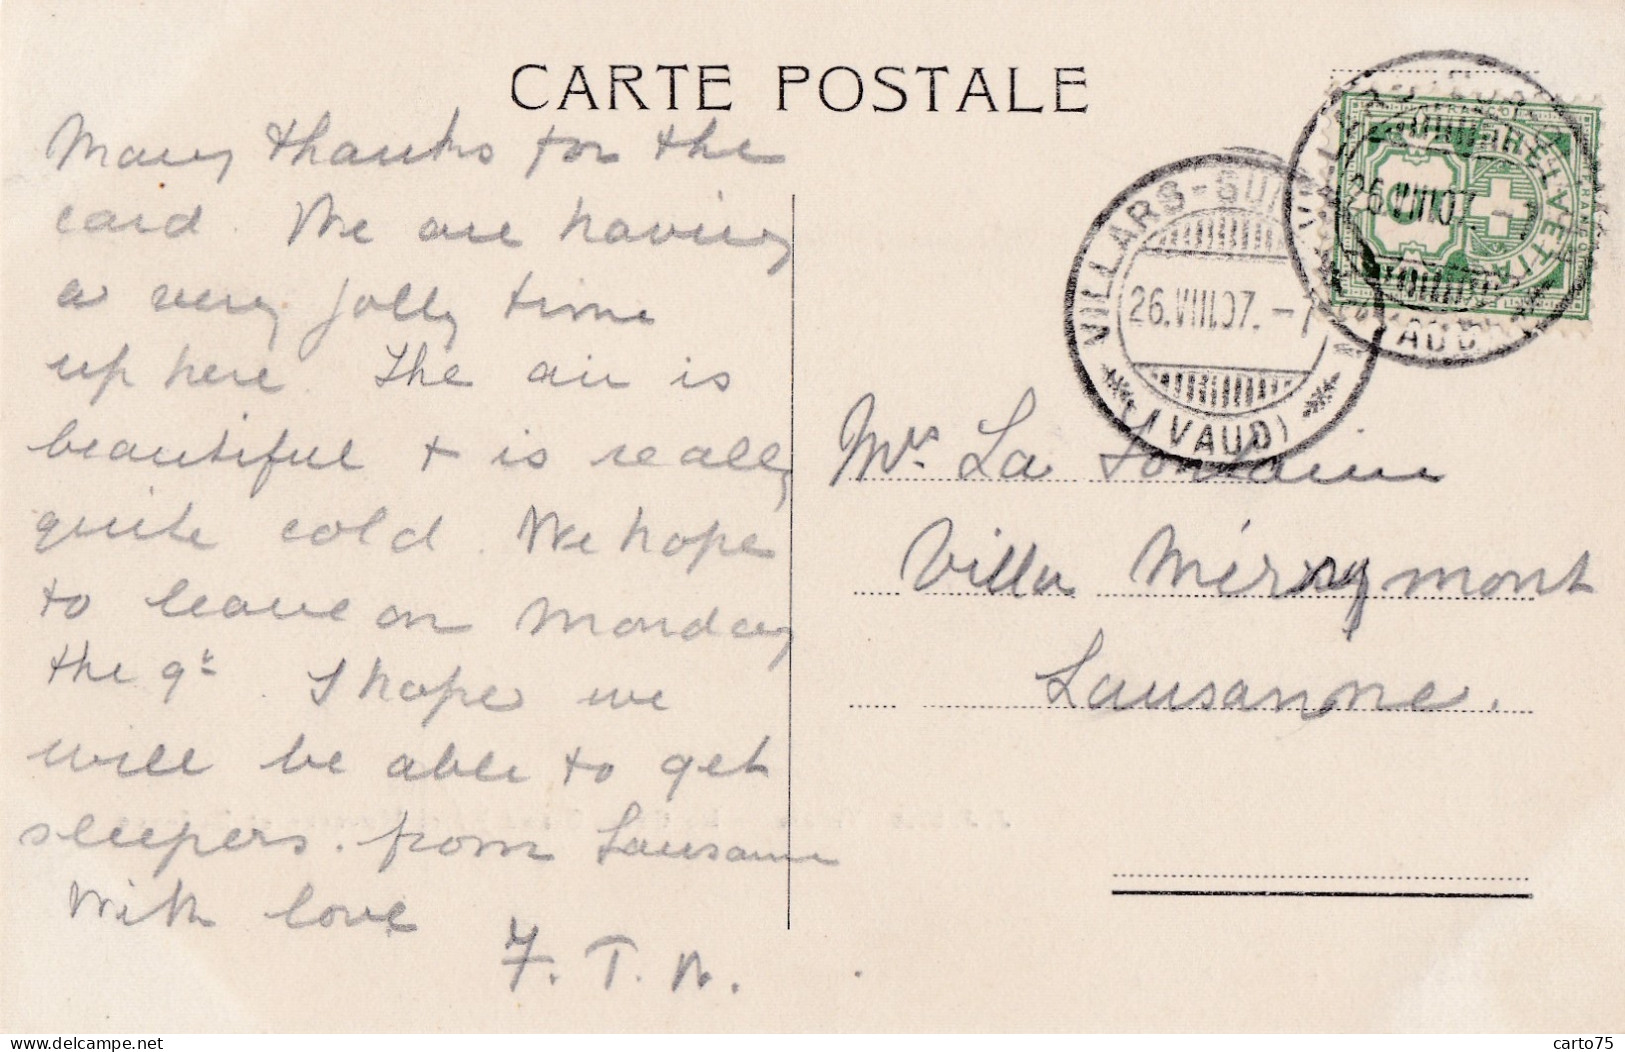 CARTE POSTALE
Many thanks for the
card. We are having
a very jolly time
up here. The air is
beautiful + is really
quite cold. We hope
to leave on Monday
the 9th. I hope we
will be able to get
sleepers. from Lausanne
With love
F. T. N.
VILLARS-SUR
26.VIII.07.-7
(VAUD)
26.VIII.07.-7
VAUD
HELVETIA
FRANCO
Mrs. La Fontaine
Villa
Lausanne.
delcampe.net
carto75